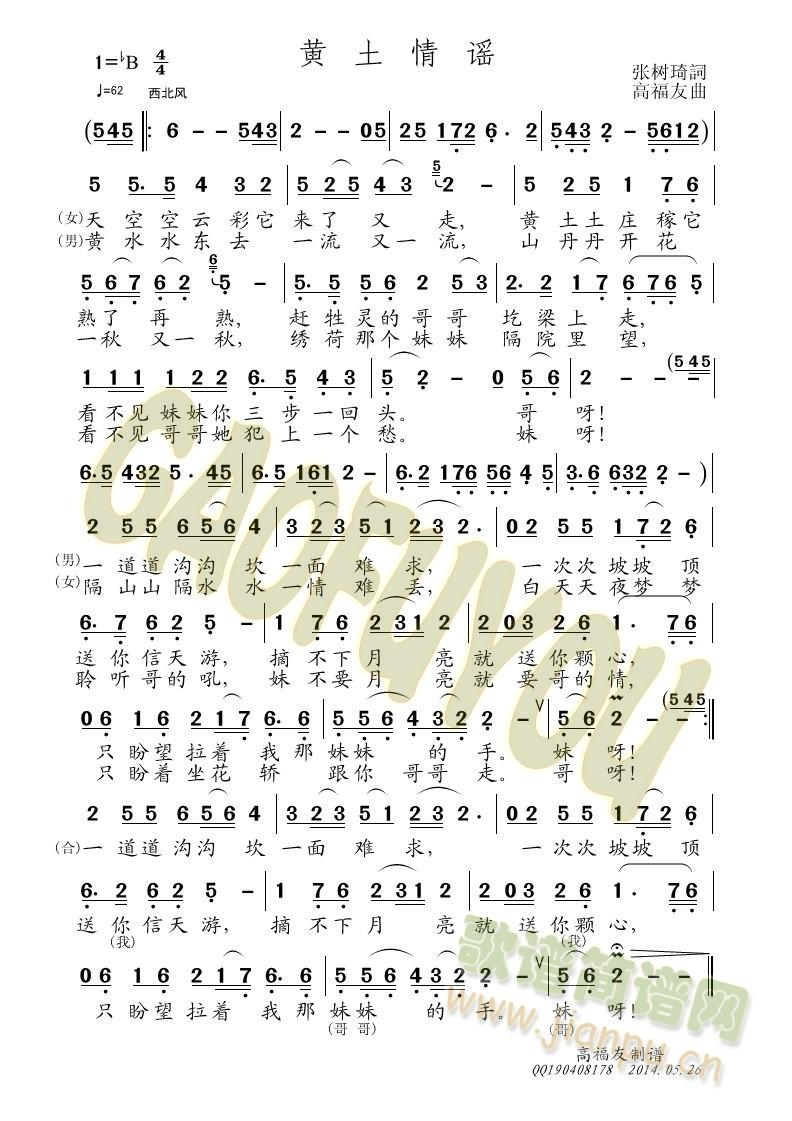 黄土情谣
1=♭B 4/4
♩=62 西北风
张树琦詞
高福友曲
(545 ‖: 6 - - 543 | 2 - - 05 | 25 172 6· 2 | 543 2 - 5612)
5 5· 5 4 3 2 | 5 2 5 4 3 5 2 - | 5 2 5 1 7 6
(女)天空空云彩它来了又走，黄土土庄稼它
(男)黄水水东去一流又一流，山丹丹开花
5 6 7 6 2 6 5 - | 5· 5 5 6 2 5 3 | 2· 2 1 7 6 7 6 5
熟了再熟，赶牲灵的哥哥圪梁上走，
一秋又一秋，绣荷那个妹妹隔院里望，
1 1 1 1 2 2 6· 5 4 3 | 5 2 - 0 5 6 | 2 - - (5 4 5
看不见妹妹你三步一回头。哥呀！
看不见哥哥她犯上一个愁。妹呀！
6·5 432 5· 45 | 6·5 161 2 - | 6·2 176 56 4 5 | 3·6 632 2 - )
2 5 5 6 5 6 4 | 3 2 3 5 1 2 3 2· | 0 2 5 5 1 7 2 6
(男)一道道沟沟坎一面难求，一次次坡坡顶
(女)隔山山隔水水一情难丢，白天天夜梦梦
6· 7 6 2 5 - | 1 7 6 2 2 3 1 2 | 2 0 3 2 6 1· 7 6
送你信天游，摘不下月亮就送你颗心，
聆听哥的吼，妹不要月亮就要哥的情，
0 6 1 6 2 1 7 6· 6 | 5 5 6 4 3 2 2 - ∨ | 5 6 2 - (5 4 5 :‖
只盼望拉着我那妹妹的手。妹呀！
只盼着坐花轿跟你哥哥走。哥呀！
2 5 5 6 5 6 4 | 3 2 3 5 1 2 3 2· | 0 2 5 5 1 7 2 6
(合)一道道沟沟坎一面难求，一次次坡坡顶
6· 2 6 2 5 - | 1 7 6 2 2 3 1 | 2 0 3 2 6 1· 7 6
送你信天游，摘不下月亮就送你颗心，
(我) (我)
0 6 1 6 2 1 7 6· 6 | 5 5 6 4 3 2 2 - ∨ | 5 6 2 - - ‖
只盼望拉着我那妹妹的手。妹呀！
(哥哥) (哥)
高福友制谱
QQ190408178 2014.05.26
GAOFUYOU
歌谱简谱网
www.jianpu.cn